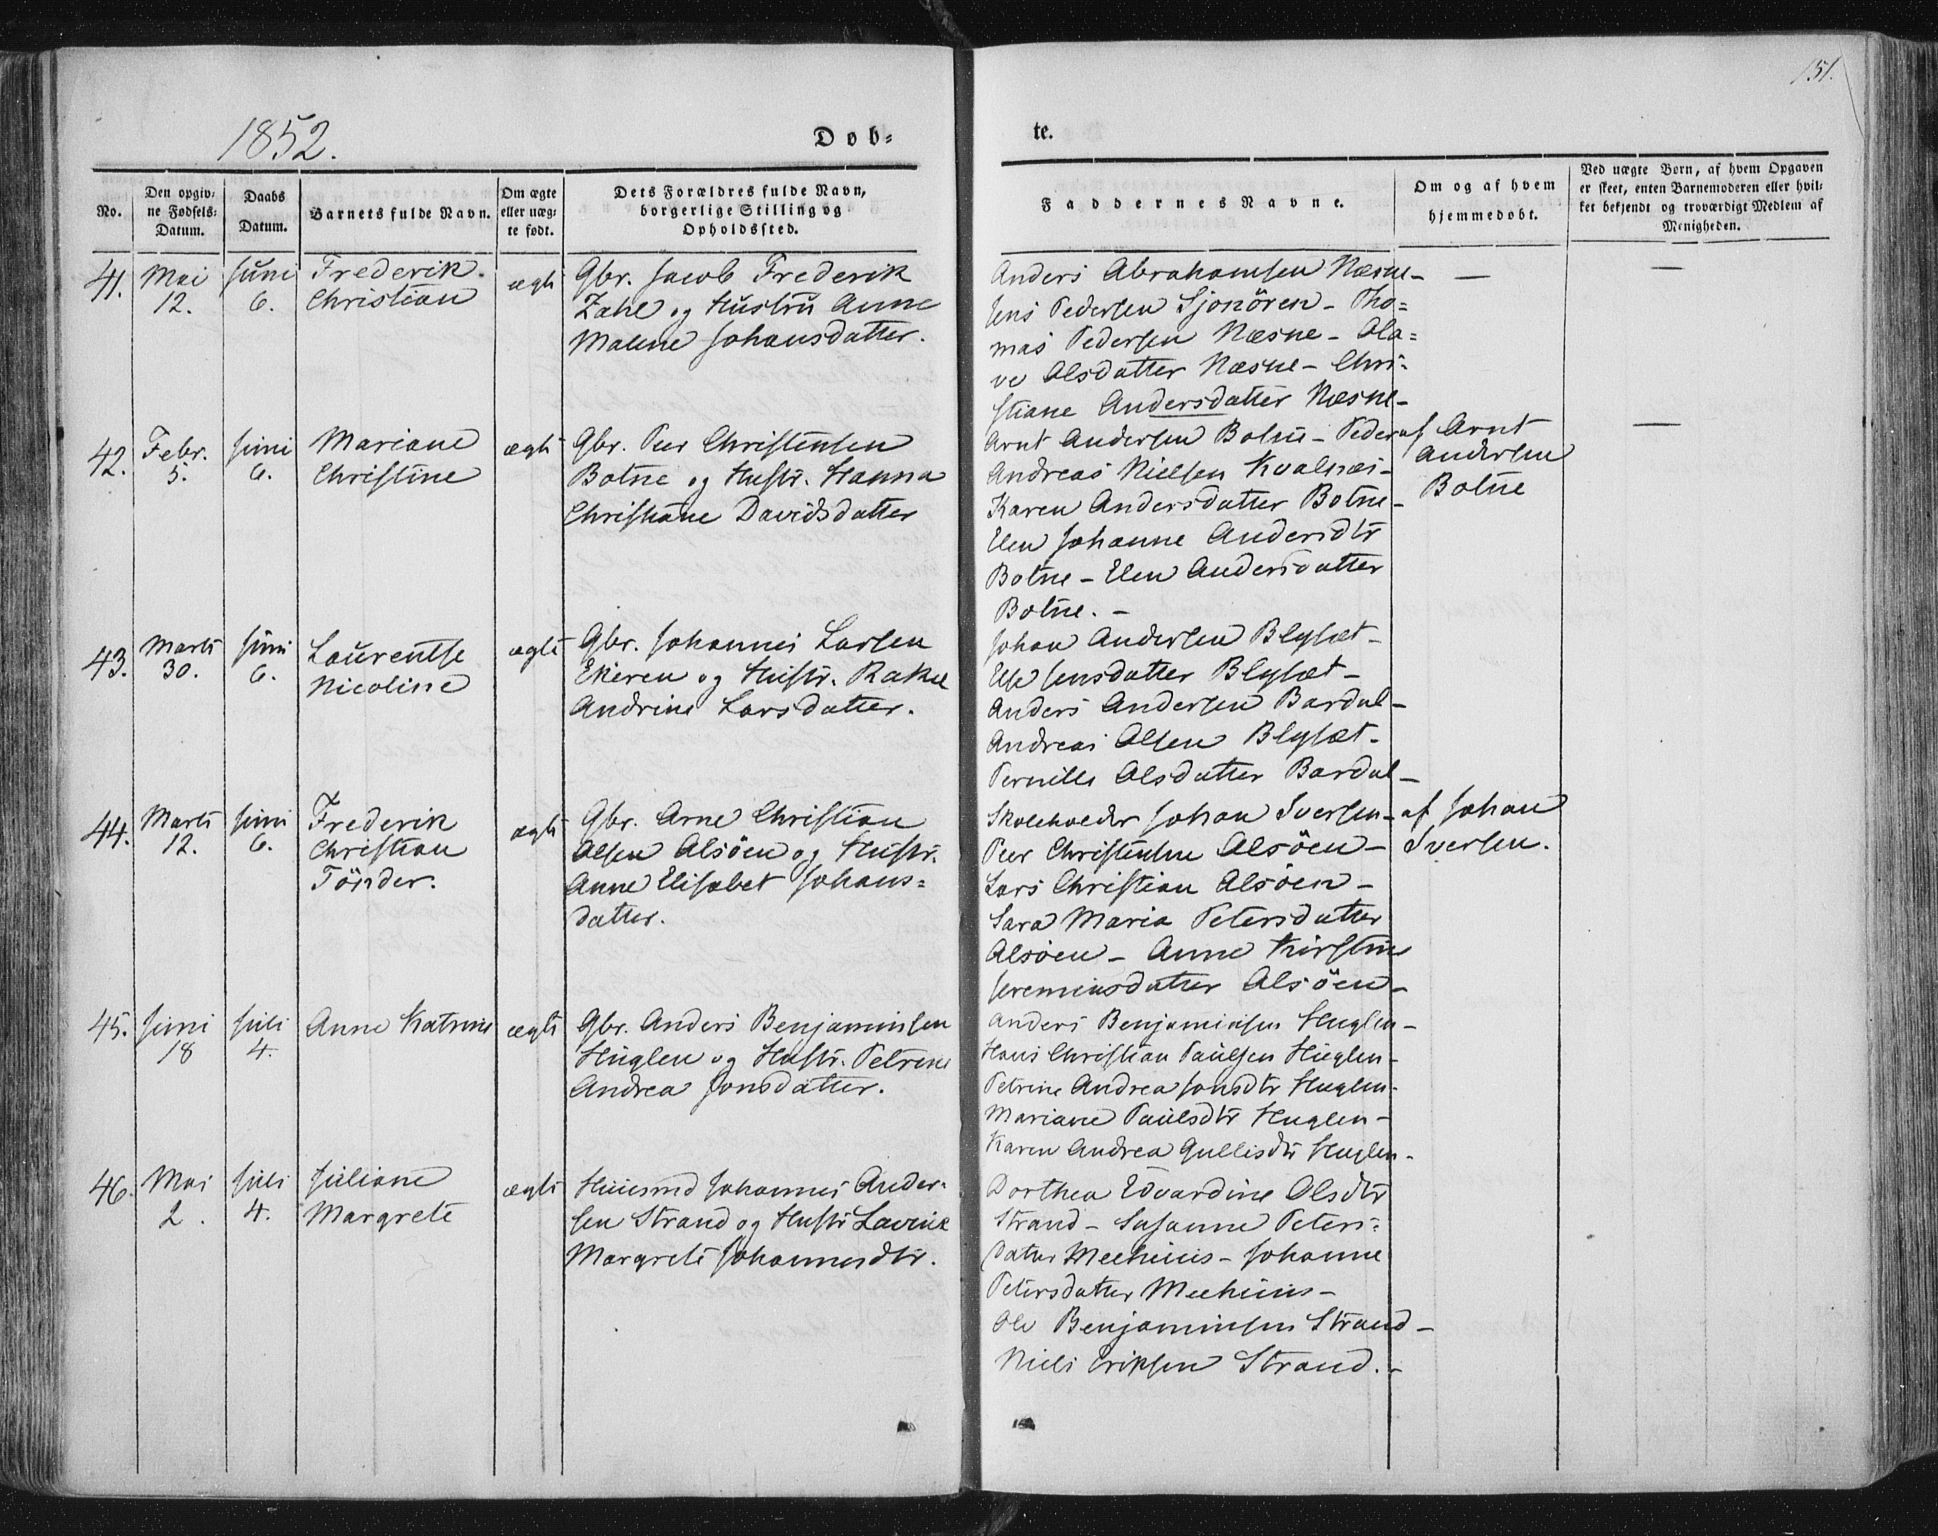 151.
1852.
Døb-
te.
No.
Den opgiv-
ne Fødsels-
Datum.
Daabs
Datum.
Barnets fulde Navn.
Om ægte
eller uæg-
te født.
Dets Forældres fulde Navn,
borgerlige Stilling og
Opholdssted.
Faddernes Navne.
Om og af hvem
hjemmedøbt.
Ved uægte Børn, af hvem Opgaven
er skeet, enten Barnemoderen eller hvil-
ket bekjendt og troværdigt Medlem af
Menigheden.
41.
Mai
12.
Juni
6.
Frederik
Christian
ægte
Gbr. Jacob Frederik
Zahl og Hustru Anne
Malene Johansdatter.
Anders Abrahamsen Næsne -
Jens Pedersen Sjonören - Tho-
mas Pedersen Næsne - Ola-
ve Olsdatter Næsne - Chri-
stiane Andersdatter Næsne -
—
—
42.
Febr.
5.
Juni
6.
Mariane
Christine
ægte
Gbr. Peer Christensen
Botne og Hustr. Hanna
Christiane Davidsdatter
Arnt Andersen Botne - Peder
Andreas Nielsen Kvalnæs -
Karen Andersdatter Botne -
Elen Johanne Andersdtr
Botne - Elen Andersdatter
Botne. -
af Arnt
Andersen
Botne
—
43.
Marts
30.
Juni
6.
Laurentse
Nicoline
ægte
Gbr. Johannes Larsen
Ekeren og Hustr. Rakel
Andrine Larsdatter.
Johan Andersen Blysæt -
Else Jensdatter Blysæt -
Anders Andersen Bardal -
Andreas Olsen Blysæt -
Pernille Olsdatter Bardal -
44.
Marts
12.
Juni
6.
Frederik
Christian
Tönder.
ægte
Gbr. Arne Christian
Olsen Alsöen og Hustr.
Anne Elisabet Johans-
datter.
Skoleholder Johan Iversen -
Peer Christensen Alsöen -
Lars Christian Alsöen -
Sara Maria Petersdatter
Alsöen - Anne Kirstine
Jeremiasdatter Alsöen -
af Johan
Iversen.
45.
Juni
18
Juli
4.
Anne Katrine
ægte
Gbr. Anders Benjaminsen
Huglen og Hustr. Petrine
Andrea Jonsdatter.
Anders Benjaminsen Huglen -
Hans Christian Paulsen Huglen -
Petrine Andrea Jonsdtr Huglen -
Mariane Paulsdtr Huglen -
Karen Andrea Gullisdtr Huglen -
46.
Mai
2.
Juli
4.
Juliane
Margrete
ægte
Huusmd Johannes Ander-
sen Strand og Hustr Lavine
Margrete Johannesdtr.
Dorthea Edvardine Olsdtr
Strand - Susanne Peters-
datter - Johanne
Petersdatter
Ole Benjaminsen Strand -
Niels Eriksen Strand. -